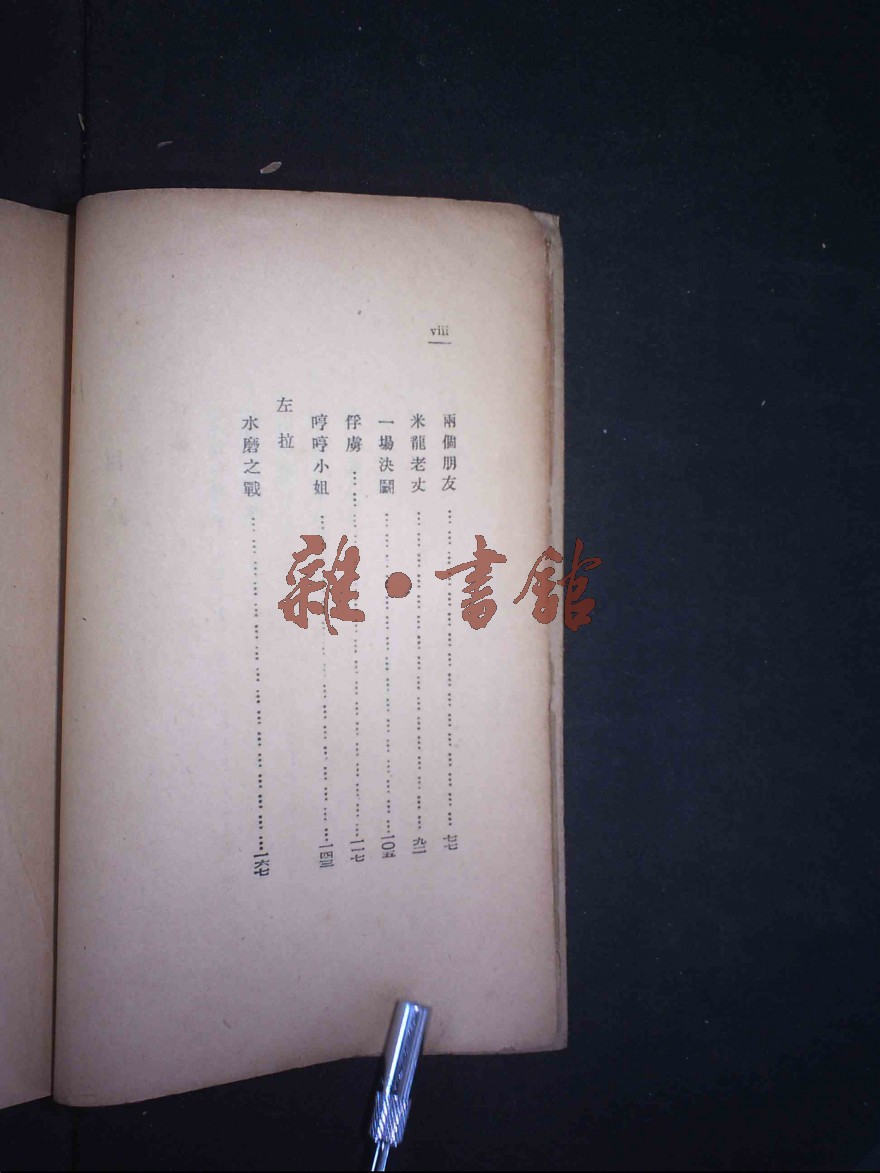 viii
兩個朋友……七七
米龍老丈……九二
一場決鬭……一〇五
俘虜……一一七
哼哼小姐……一四三
左拉
水磨之戰……一六七
雜·書館